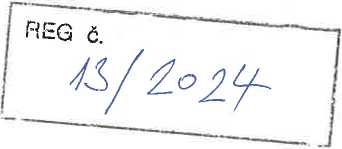 REG č.
13/2024